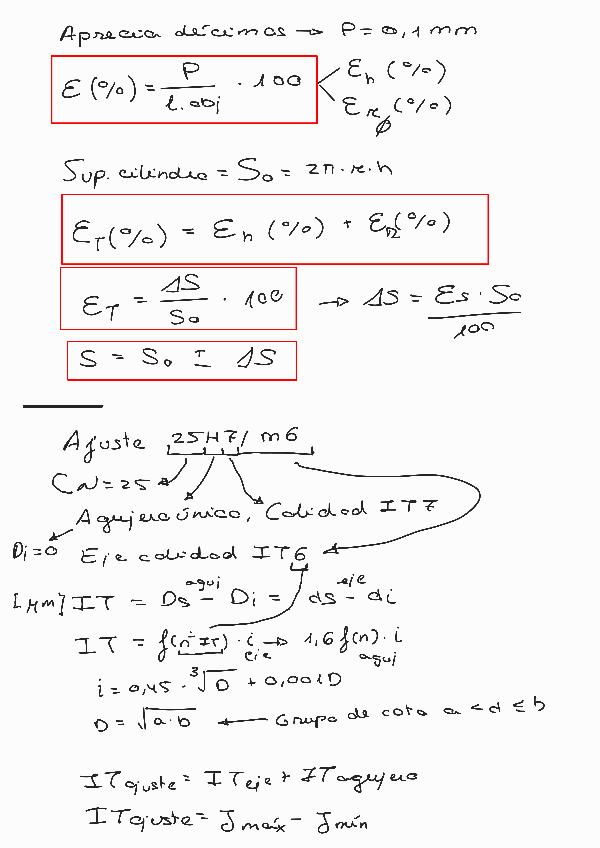 Aprecia décimas → P = 0,1 mm
E (%) = P / l.obj · 100
Eh (%)
Er,ϕ (%)
Sup. cilindro = So = 2π·r·h
ET (%) = Eh (%) + ER (%)
ET = ΔS / So · 100 → ΔS = Es · So / 100
S = So ± ΔS
Ajuste 25H7/m6
CN = 25
Agujero único, Calidad IT7
Di = 0 Eje calidad IT6
[μm] IT = Ds - Di = ds - di
aguj eje
IT = f(nº IT) · i → 1,6 f(n) · i
eje aguj
i = 0,45 · ³√D + 0,001D
D = √a·b ← Grupo de cota a < d ≤ b
ITajuste = ITeje + ITagujero
ITajuste = Jmáx - Jmín